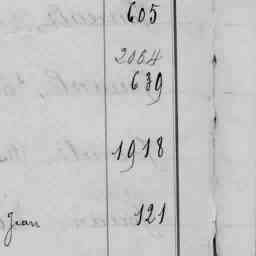 605
2064
639
1918
Jean 121